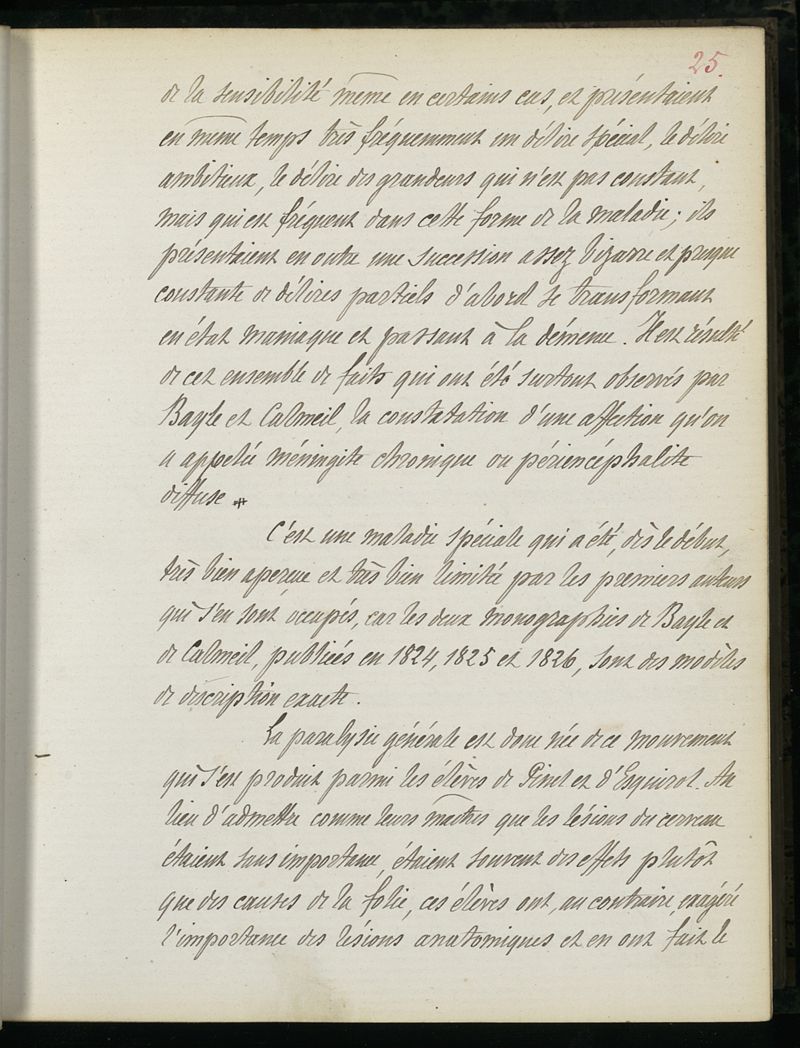 25.
de la sensibilité même en certains cas, et présentaient
en même temps très fréquemment un délire spécial, le délire
ambitieux, le délire des grandeurs qui n'est pas constant,
mais qui est fréquent dans cette forme de la maladie; ils
présentaient en outre une succession assez bizarre et presque
constante de délires partiels d'abord se transformant
en état maniaque et passant à la démence. Il est résulté
de cet ensemble de faits qui ont été surtout observés par
Bayle et Calmeil, la constatation d'une affection qu'on
a appelée méningite chronique ou périencéphalite
diffuse.
C'est une maladie spéciale qui a été, dès le début,
très bien aperçue et très bien limitée par les premiers auteurs
qui s'en sont occupés, car les deux monographies de Bayle et
de Calmeil, publiées en 1824, 1825 et 1826, sont des modèles
de description exacte.
La paralysie générale est donc née de ce mouvement
qui s'est produit parmi les élèves de Pinel et d'Esquirol. Au
lieu d'admettre comme leurs maîtres que les lésions du cerveau
étaient sans importance, étaient souvent des effets plutôt
que des causes de la folie, ces élèves ont, au contraire, exagéré
l'importance des lésions anatomiques et en ont fait le